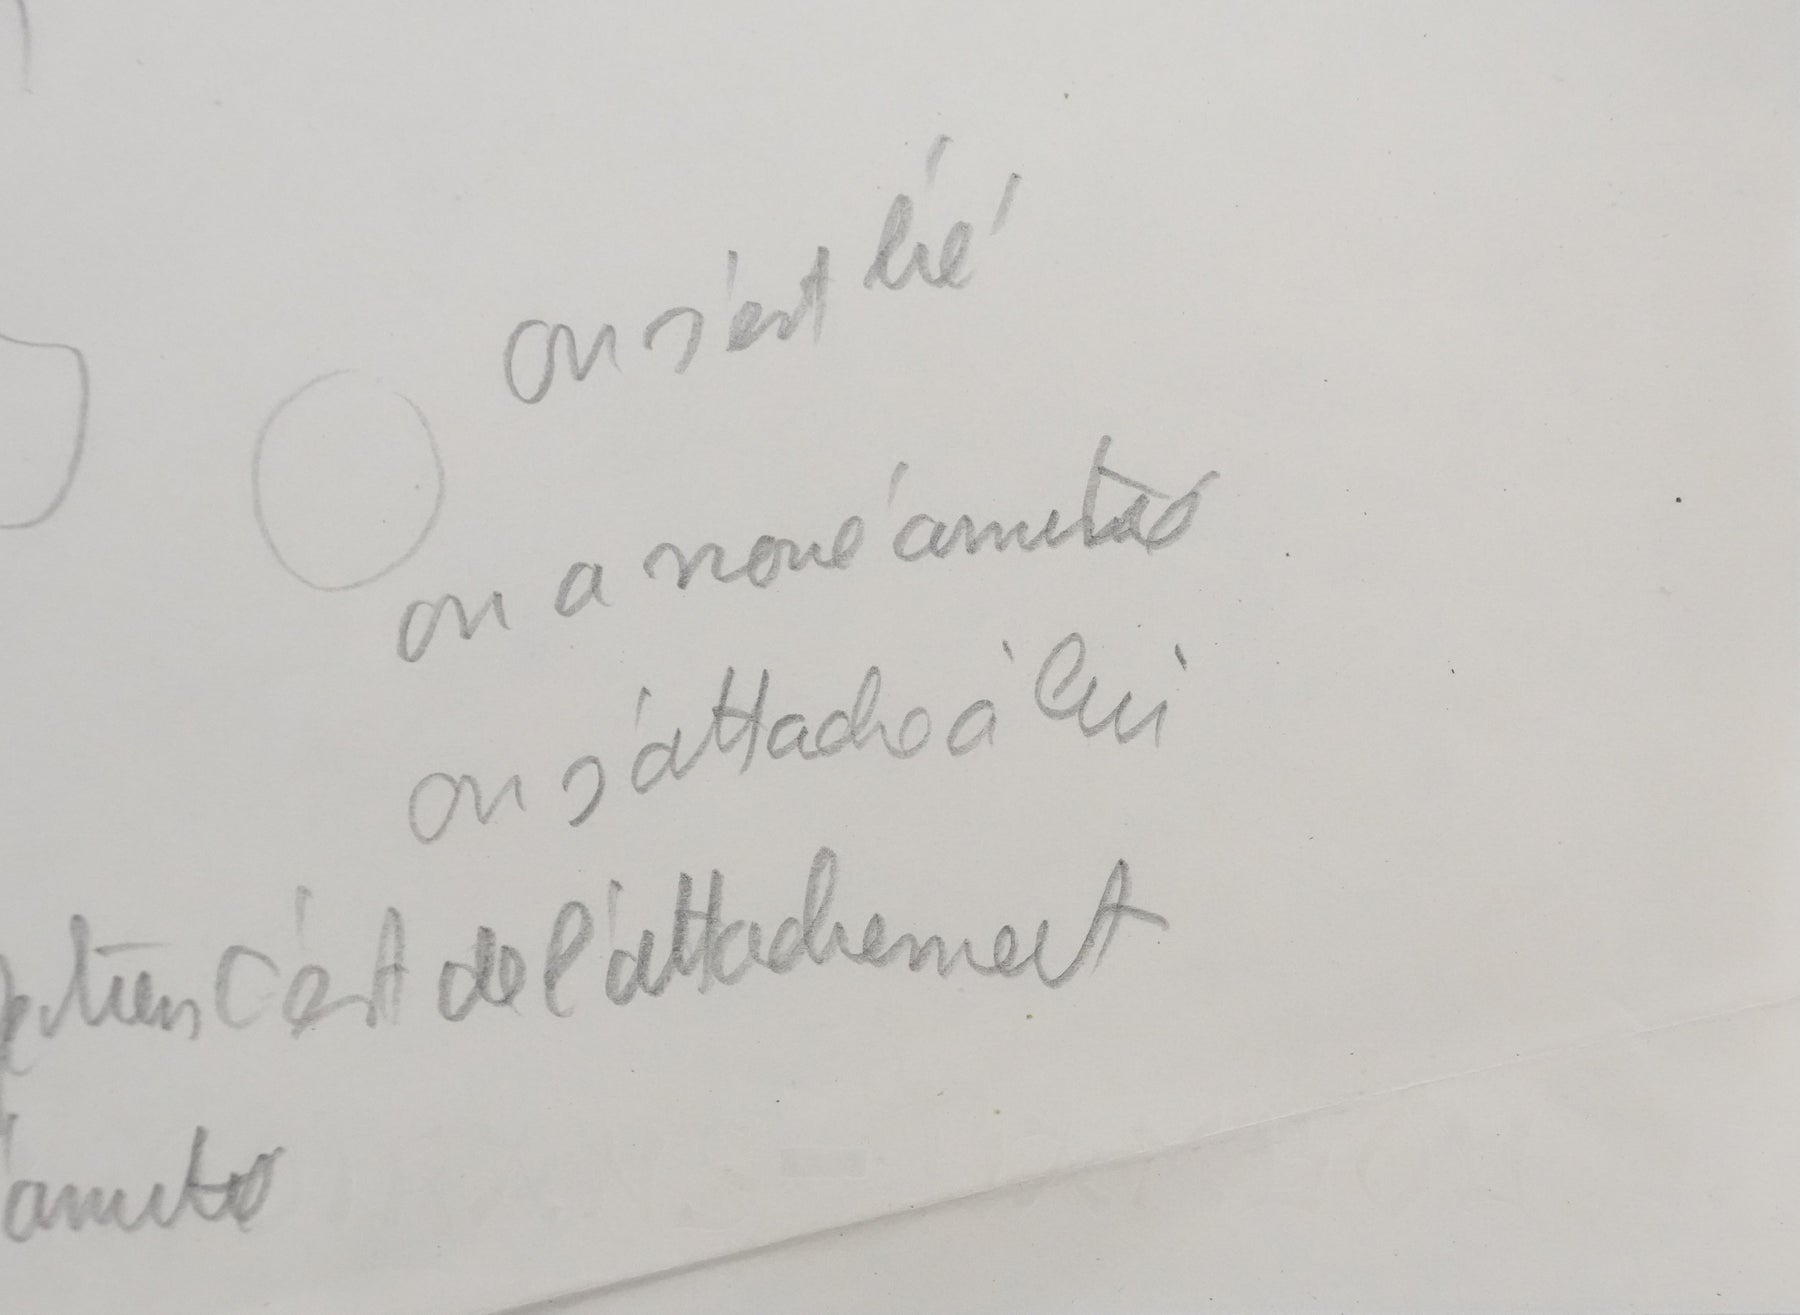 on s'est lié
on a noué amitié
on s'attache à lui
c'est de l'attachement